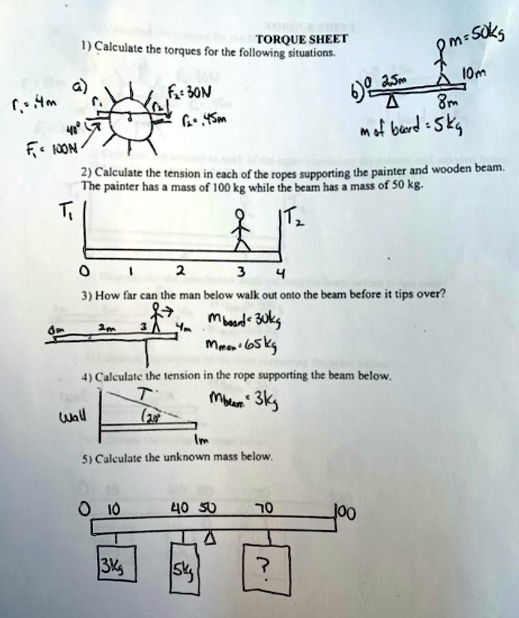 TORQUE SHEET
1) Calculate the torques for the following situations.
a)
r₁ = .4m
r₁
F₂ = 30N
r₂
r₂ = .45m
40°
F₁ = 100N
b)
m = 50kg
0
10m
8m
m of board = 5kg
2) Calculate the tension in each of the ropes supporting the painter and wooden beam.
The painter has a mass of 100 kg while the beam has a mass of 50 kg.
T₁
T₂
0 1 2 3 4
3) How far can the man below walk out onto the beam before it tips over?
0m 2m 3 4m
m board = 30kg
m man = 65kg
4) Calculate the tension in the rope supporting the beam below.
T
m beam = 3kg
wall
20°
1m
5) Calculate the unknown mass below.
0 10 40 50 70 100
3kg 5kg ?